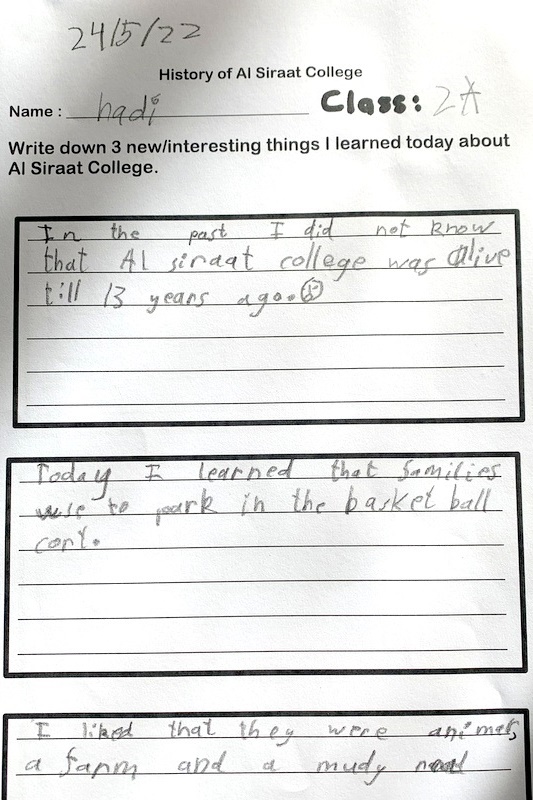 24/5/22
History of Al Siraat College
Name : hadi Class: 2A
Write down 3 new/interesting things I learned today about
Al Siraat College.
In the past I did not know
that Al siraat college was alive
till 13 years ago.
Today I learned that families
use to park in the basket ball
cort.
I liked that they were animals
a farm and a mudy